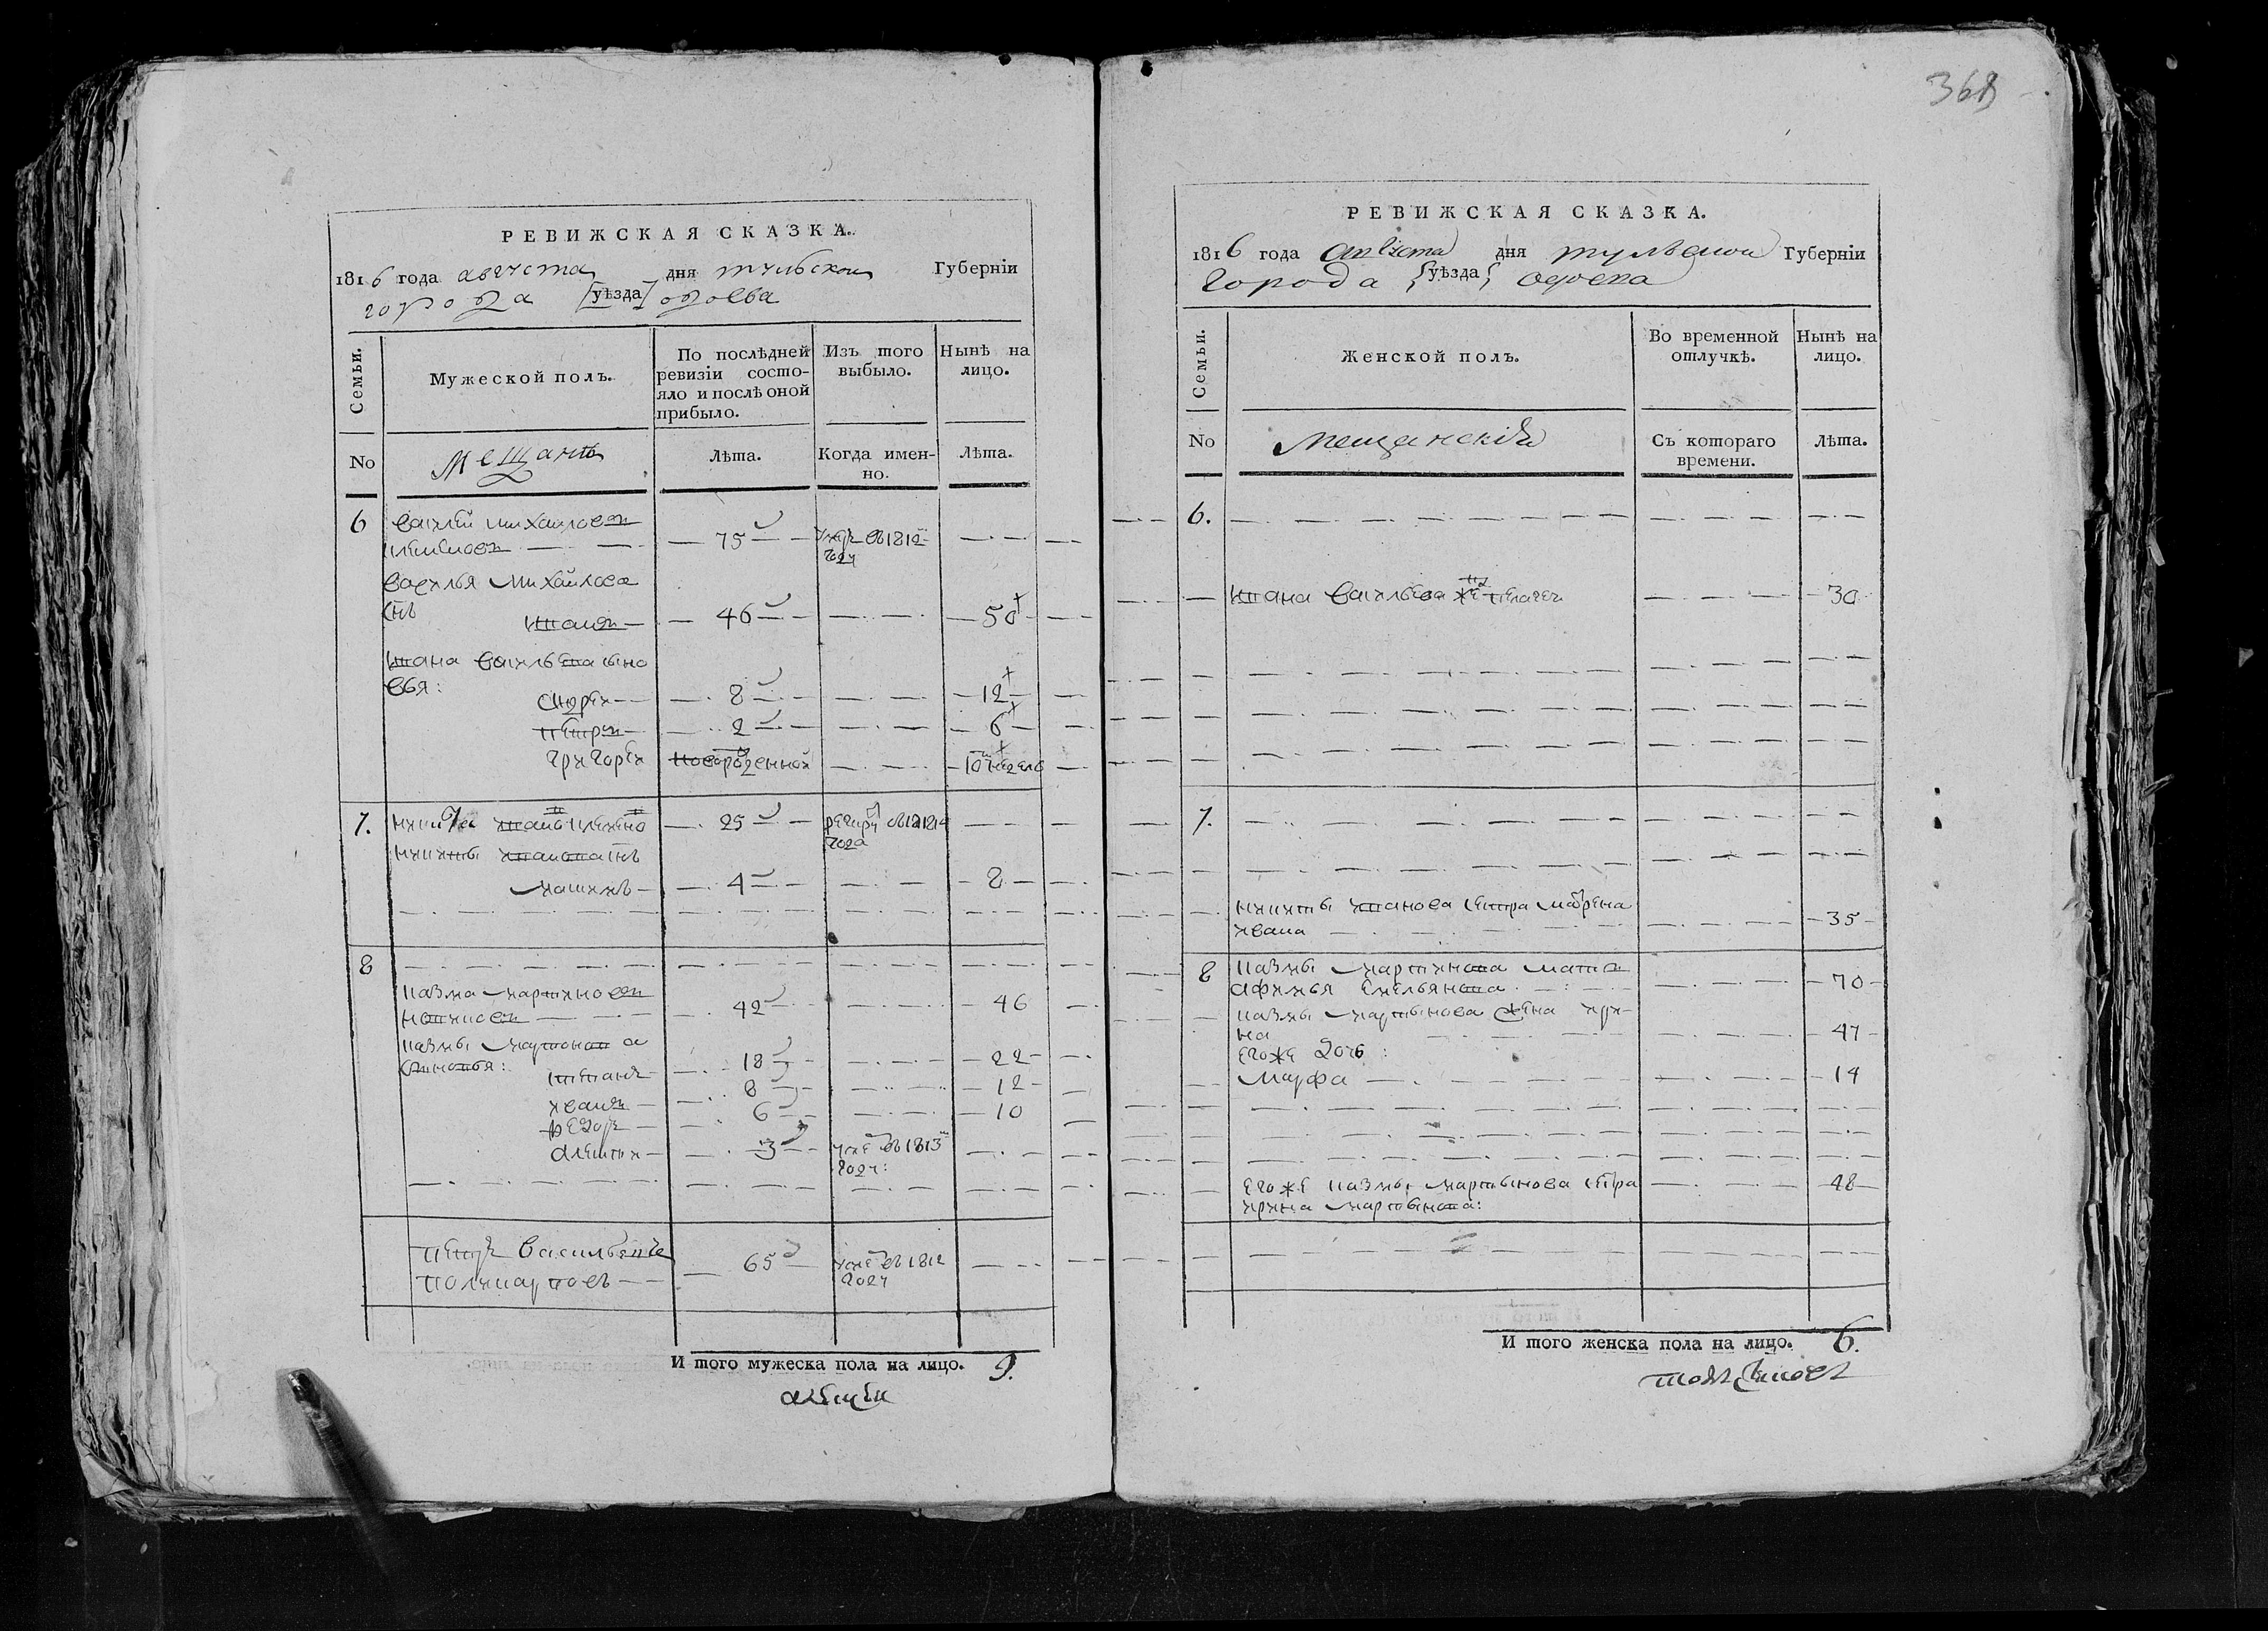 368
РЕВИЖСКАЯ СКАЗКА.
1816 года августа дня тульской Губерніи
города [уѣзда] одоева
Семьи.
Мужеской полъ.
По послѣдней ревизіи состо-
яло и послѣ оной прибыло.
Изъ того выбыло.
Нынѣ на лицо.
No
Мещанъ
Лѣта.
Когда имен-
но.
Лѣта.
6
василей михаиловъ
75
умре въ 1812
году
василья михайлова
снъ
46
50
васильева сыно
вья:
андреи
8
12
петръ
2
6
григореи
новорожденной
10 недел
7.
никита
25
рекруты въ 1814
года
никиты
снъ
максимъ
4
8
8
козма мартиновъ
42
46
козмы
сыновья:
степанъ
18
22
иванъ
8
12
федоръ
6
10
алексеи
3
уме въ 1813
году:
петръ васильевъ
поликарповъ
65
уме въ 1812
году
И того мужеска пола на лицо. 9.
РЕВИЖСКАЯ СКАЗКА.
1816 года августа дня тульской Губерніи
города {уѣзда} одоева
Семьи.
Женской полъ.
Во временной
отлучкѣ.
Нынѣ на
лицо.
No
мещанскій
Съ котораго
времени.
Лѣта.
6.
васильева же
30
7.
никиты
сестра
35
8
козмы мартинова мать
афимья емельянова
70
козмы мартынова жена ири-
на
47
егоже дочь:
марфа
14
егоже козмы мартынова сестра
ирина мартынова:
48
И того женска пола на лицо. 6.